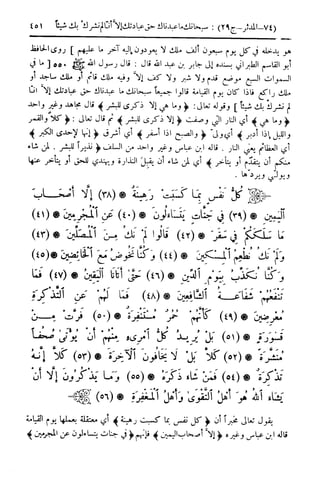 (٧٤ – المدثر – ج٢٩) : سبحانك ما عبدناك حق عبادتك إلا أنا لم نشرك بك شيئاً ٤٥١
هو يدخله في كل يوم سبعون ألف ملك لا يعودون إليه آخر ما عليهم ] روى الحافظ
أبو القاسم الطبراني بسنده إلى جابر بن عبد الله قال : قال رسول الله ﷺ [ ما في
السماوات السبع موضع قدم ولا شبر ولا كف إلا وفيه ملك قائم أو ملك ساجد أو
ملك راكع فإذا كان يوم القيامة قالوا جميعاً سبحانك ما عبدناك حق عبادتك إلا أنا
لم نشرك بك شيئاً ] وقوله تعالى : ﴿ وما هي إلا ذكرى للبشر ﴾ قال مجاهد وغير واحد
﴿ وما هي ﴾ أي النار التي وصفت ﴿ إلا ذكرى للبشر ﴾ ثم قال تعالى : ﴿ كلا والقمر
والليل إذا أدبر ﴾ أي ولى ﴿ والصبح إذا أسفر ﴾ أي أشرق ﴿ إنها لإحدى الكبر ﴾
أي العظائم يعني النار . قاله ابن عباس وغير واحد من السلف ﴿ نذيراً للبشر . لمن شاء
منكم أن يتقدم أو يتأخر ﴾ أي لمن شاء أن يقبل النذارة ويهتدي للحق أو يتأخر عنها
ويولي ويردها .
كُلُّ نَفْسٍ بِمَا كَسَبَتْ رَهِينَةٌ (٣٨) إِلَّا أَصْحَابَ
الْيَمِينِ (٣٩) فِي جَنَّاتٍ يَتَسَاءَلُونَ (٤٠) عَنِ الْمُجْرِمِينَ (٤١)
مَا سَلَكَكُمْ فِي سَقَرَ (٤٢) قَالُوا لَمْ نَكُ مِنَ الْمُصَلِّينَ (٤٣)
وَلَمْ نَكُ نُطْعِمُ الْمِسْكِينَ (٤٤) وَكُنَّا نَخُوضُ مَعَ الْخَائِضِينَ (٤٥)
وَكُنَّا نُكَذِّبُ بِيَوْمِ الدِّينِ (٤٦) حَتَّى أَتَانَا الْيَقِينُ (٤٧) فَمَا
تَنْفَعُهُمْ شَفَاعَةُ الشَّافِعِينَ (٤٨) فَمَا لَهُمْ عَنِ التَّذْكِرَةِ
مُعْرِضِينَ (٤٩) كَأَنَّهُمْ حُمُرٌ مُسْتَنْفِرَةٌ (٥٠) فَرَّتْ مِنْ
قَسْوَرَةٍ (٥١) بَلْ يُرِيدُ كُلُّ امْرِىءٍ مِنْهُمْ أَنْ يُؤْتَى صُحُفًا
مُنَشَّرَةً (٥٢) كَلَّا بَلْ لَا يَخَافُونَ الْآخِرَةَ (٥٣) كَلَّا إِنَّهُ
تَذْكِرَةٌ (٥٤) فَمَنْ شَاءَ ذَكَرَهُ (٥٥) وَمَا يَذْكُرُونَ إِلَّا أَنْ
يَشَاءَ اللَّهُ هُوَ أَهْلُ التَّقْوَى وَأَهْلُ الْمَغْفِرَةِ (٥٦)
يقول تعالى مخبراً أن ﴿ كل نفس بما كسبت رهينة ﴾ أي معتقلة بعملها يوم القيامة
قاله ابن عباس وغيره ﴿ إلا أصحاب اليمين ﴾ فإنهم ﴿ في جنات يتساءلون عن المجرمين ﴾